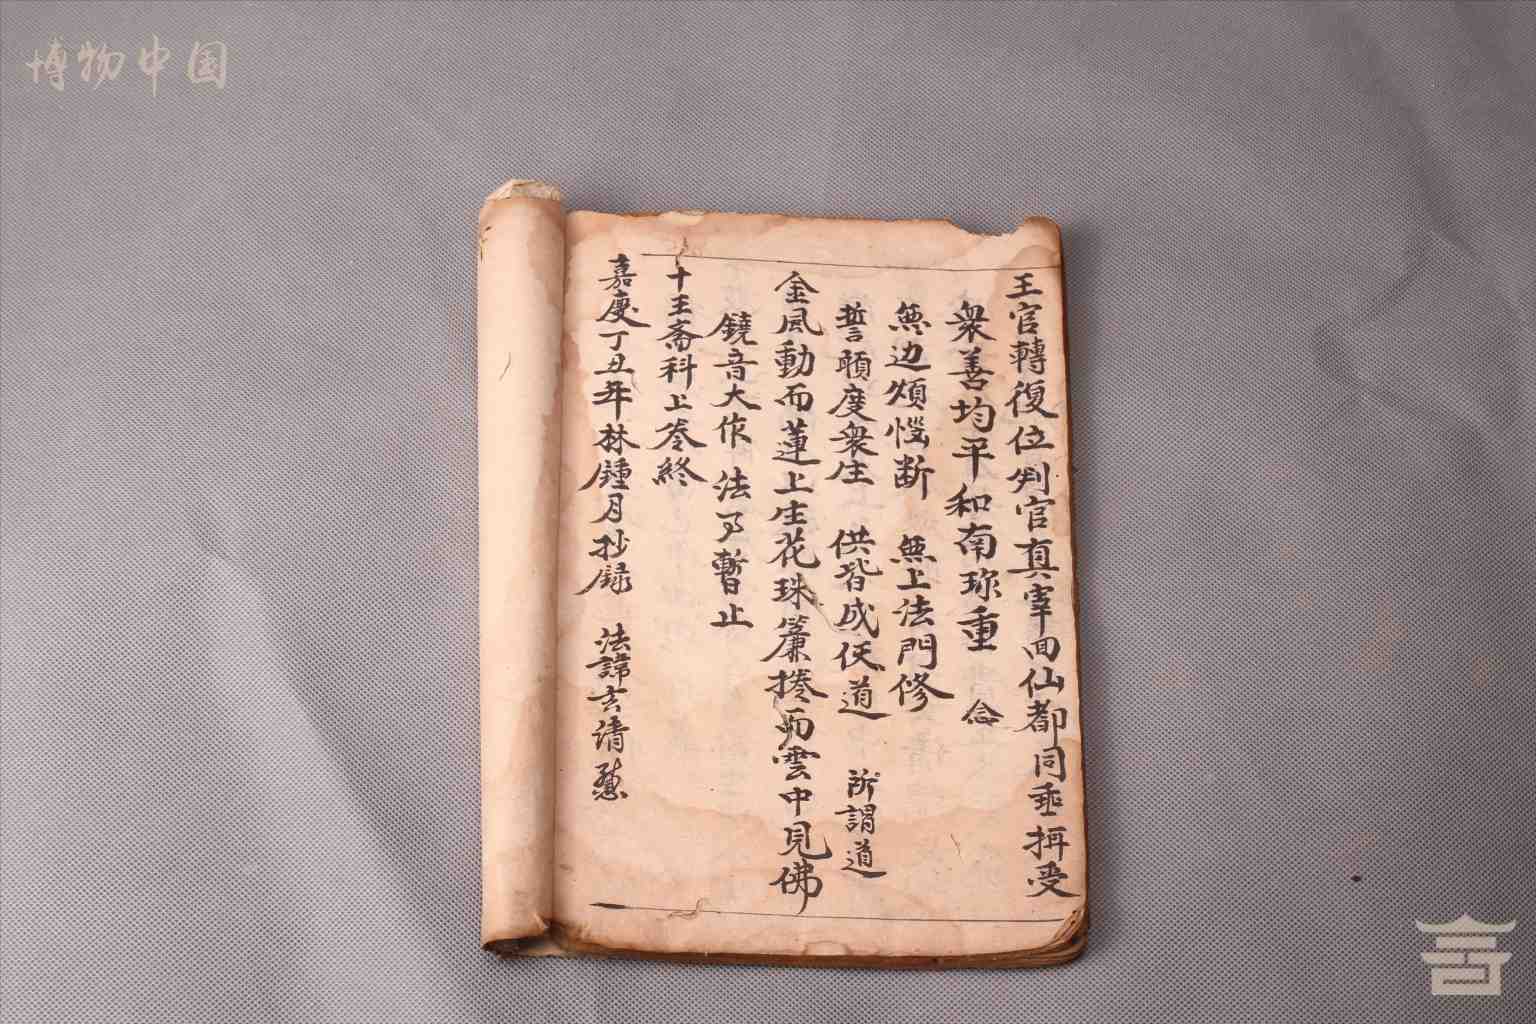 博物中国
王官轉復位判官真宰回仙都同垂拯受
衆善均平和南珎重 念
無边煩惱断 無上法門修
誓願度衆生 供皆成仸道 所謂道
金風動而蓮上生花珠簾捲而雲中見佛
鐃音大作 法事暫止
十王斋科上卷終
嘉慶丁丑年林鍾月抄録 法諱玄清